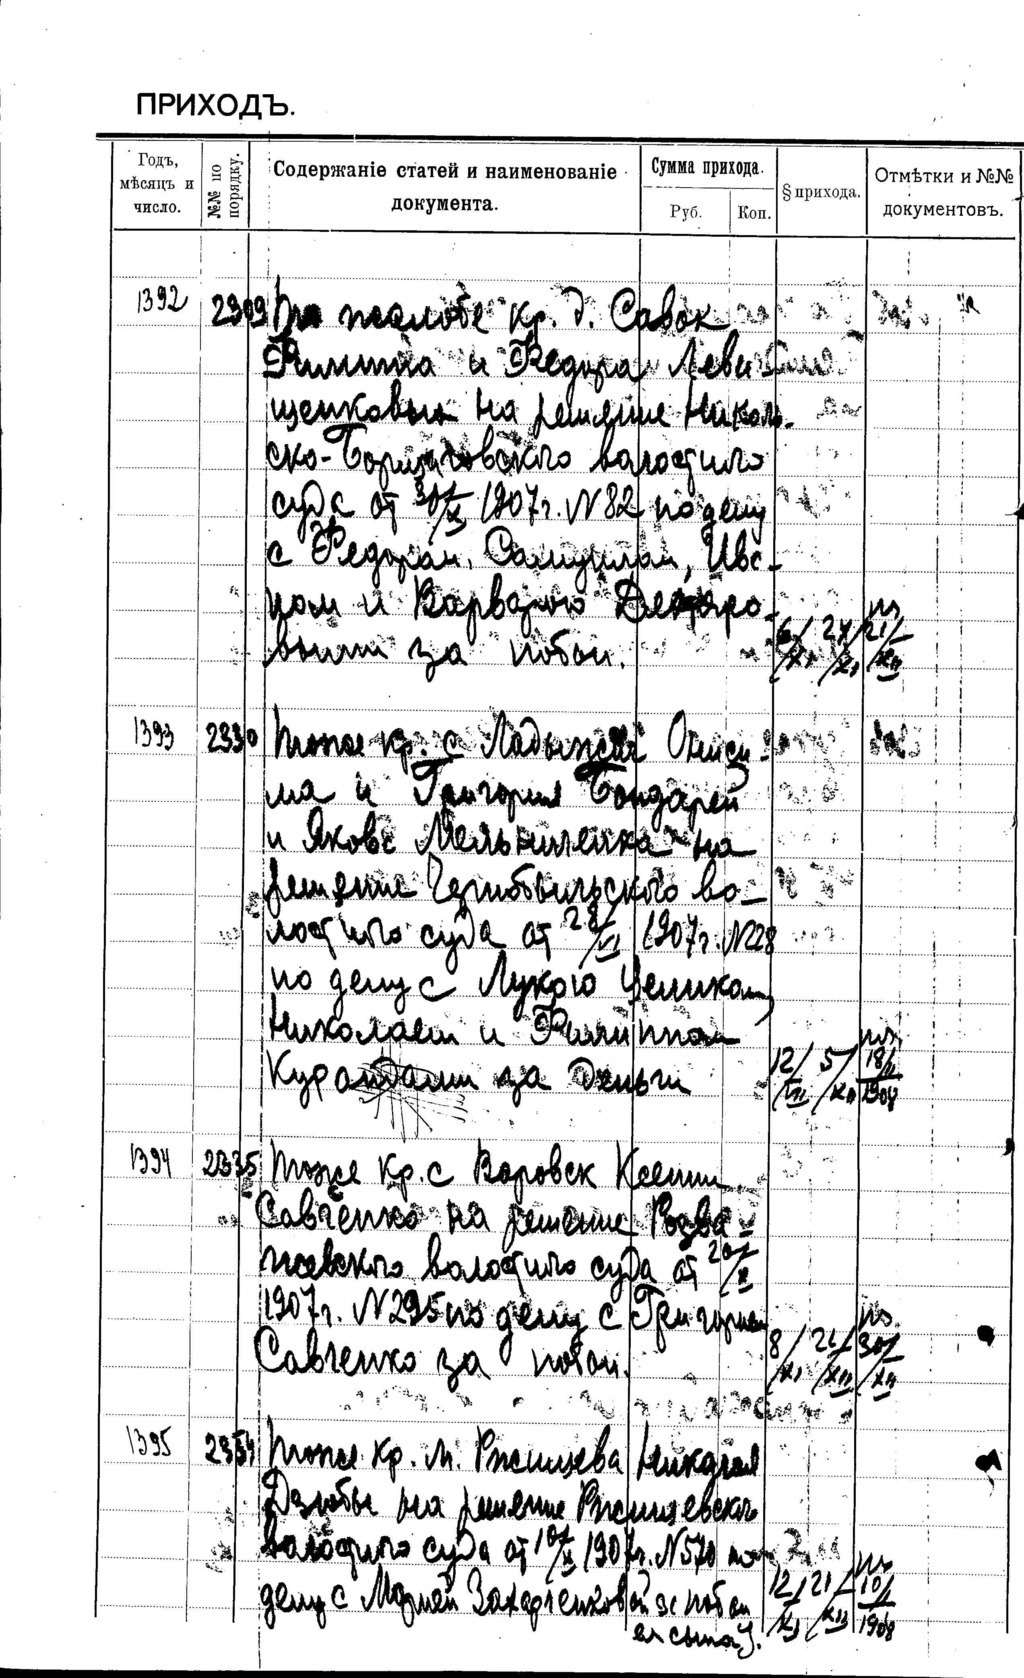 ПРИХОДЪ.
Годъ, мѣсяцъ и число.
№№ по порядку.
Содержаніе статей и наименованіе документа.
Сумма прихода.
Руб. Коп.
§ прихода.
Отмѣтки и №№ документовъ.
1392 2309 По жалобе кр. д. Савок
и Федора Леви
щенковых на решение Николь-
ско- волостного
суда от 30/X 1907 г. N 82 по делу
с Федором, Самуилом, Ива-
ном и Варварою Дегтяро-
выми за побои. 6/XI 24/XI 21/XII
1393 2330 Тоже кр. с Ладыжич Ониси-
ма и Григория Бондарей
и Якова Мельниченка на
решение Чернобыльского во-
лостного суда от 28/VI 1907 г. N 28
по делу с Лукою
Николаем и Филиппом
Курандами за деньги 12/VII 5/XII 18/II 1908
1394 2335 Тоже кр. с Варовск Ксении
Савченко на решение Розва-
жевского волостного суда от 20/X
1907 г. N 295 по делу с Григорием
Савченко за побои. 8/XI 21/XII 30/XII
1395 2354 Тоже кр. м. Ржищева Николая
Дзюбы на решение Ржищевского
волостного суда от 10/X 1907 г. N 570 по
делу с Марией Захарченковой за побои
ея сына). 12/XI 21/XII 10/I 1908